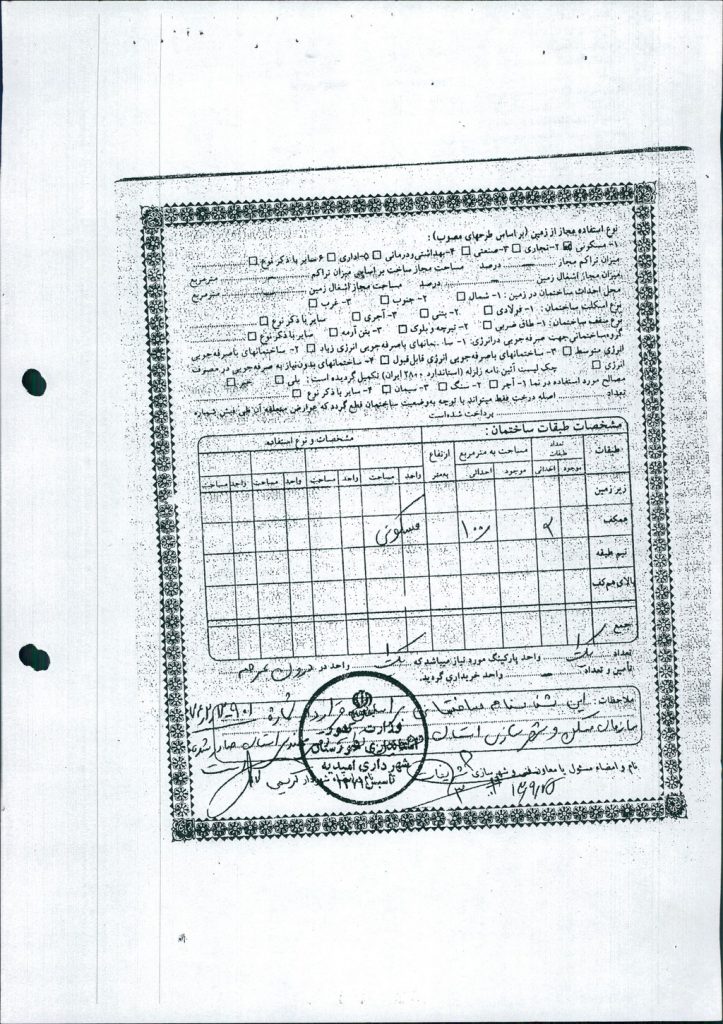 نوع استفاده مجاز از زمین (بر اساس طرحهای مصوب) :
۱- مسکونی ☑ ۲- تجاری ☐ ۳- صنعتی ☐ ۴- بهداشتی و درمانی ☐ ۵- اداری ☐ ۶ سایر با ذکر نوع ☐
میزان تراکم مجاز ــ درصد مساحت مجاز ساخت بر اساس میزان تراکم ــ مترمربع
میزان مجاز اشغال زمین ــ درصد مساحت مجاز اشغال زمین ــ مترمربع
محل احداث ساختمان در زمین : ۱- شمال ☐ ۲- جنوب ☐ ۳- غرب ☐
نوع اسکلت ساختمان : ۱- فولادی ☐ ۲- بتنی ☐ ۳- آجری ☐ سایر با ذکر نوع ☐
نوع سقف ساختمان : ۱- طاق ضربی ☐ ۲- تیرچه و بلوک ☐ ۳- بتن آرمه ☐ سایر با ذکر نوع ☐
گروه ساختمانی جهت صرفه جویی در انرژی : ۱- ساختمانهای با صرفه جویی انرژی زیاد ☐ ۲- ساختمانهای با صرفه جویی
انرژی متوسط ☐ ۳- ساختمانهای با صرفه جویی انرژی قابل قبول ☐ ۴- ساختمانهای بدون نیاز به صرفه جویی در مصرف
انرژی ☐ چک لیست آئین نامه زلزله (استاندارد ۲۸۰۰ ایران) تکمیل گردیده است : بلی ☐ خیر ☐
مصالح مورد استفاده در نما ۱- آجر ☐ ۲- سنگ ☐ ۳- سیمان ☐ ۴- سایر با ذکر نوع ☐
تعداد اصله درخت فقط میتواند با توجه به وضعیت ساختمان قطع گردد که عوارض متعلقه آن طی فیش شماره
پرداخت شده است
مشخصات طبقات ساختمان :
طبقات تعداد طبقات مساحت به مترمربع ارتفاع به متر مشخصات و نوع استفاده
موجود احداثی موجود احداثی واحد مساحت واحد مساحت واحد مساحت واحد مساحت
زیر زمین
همکف ۲ ۱۰۰ مسکونی
نیم طبقه
بالای هم کف
جمع
تعداد یک واحد پارکینگ مورد نیاز میباشد که یک واحد در درون
تأمین و تعداد ــ واحد خریداری گردید.
ملاحظات : این شناسنامه ساختمانی بر اساس قرارداد شماره
سازمان مسکن و شهرسازی استان
وزارت کشور
استانداری خوزستان
شهرداری امیدیه
تاسیس
نام و امضاء مسئول یا معاون فنی و شهرسازی
شهردار کریمی